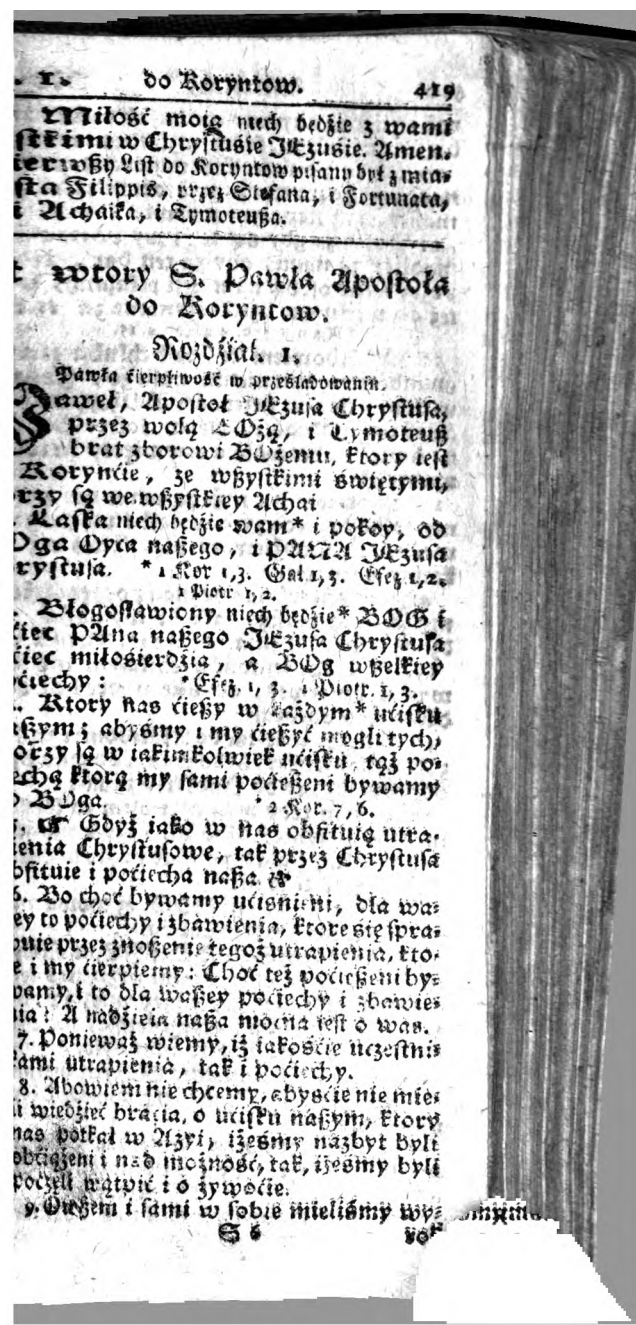 . 1. do Koryntow. 419
Miłość moją niech będźie z wami
stkimi w Chrystusie JEzusie. Amen.
ierwßy List do Koryntow pisany był z mia-
sta Filippis, przez Stefana, i Fortunata,
i Achaika, i Tymoteußa.
t wtory S. Pawła Apostoła
do Koryntow.
Rozdźiał. 1.
Pawła ćierpliwość w prześladowaniu.
aweł, Apostoł JEzusa Chrystusa,
przez wolą BOżą, i Tymoteuß
brat zborowi BOżemu, ktory iest
Koryncie, ze wßystkimi świętymi,
orzy są we wßystkiey Achai
. Łaska niech będźie wam* i pokoy, od
Oga Oyca naßego, i PANA JEzusa
rystusa. * 1 Kor 1,3. Gal 1,3. Efez 1,2.
1 Piotr 1,2.
. Błogosławiony niech będźie* BOG i
ćiec PAna naßego JEzusa Chrystusa
ćiec miłosierdźia, a BOg wßelkiey
oćiechy: * Efez. 1, 3. 1 Piotr. 1, 3.
. Ktory nas ćießy w każdym* ućisku
aßym; abyśmy i my ćießyć mogli tych,
orzy są w iakimkolwiek ućisku, tąż po-
echą ktorą my sami poćießeni bywamy
o BOga. * 2 Kor. 7, 6.
5. ☞ Gdyż iako w nas obfituią utra-
ienia Chrystusowe, tak przez Chrystusa
bfituie i poćiecha naßa.
6. Bo choć bywamy ućiśnieni, dla wa-
ey to poćiechy i zbawienia, ktore się spra-
wuie przez znoßenie tegoż utrapienia, kto-
e i my ćierpiemy: Choć też poćießeni by-
wamy, i to dla waßey poćiechy i zbawie-
nia: A nadźieia naßa mocna iest o was.
7. Ponieważ wiemy, iż iakośćie uczestni-
kami utrapienia, tak i poćiechy.
8. Abowiem nie chcemy, abyśćie nie mie-
li wiedźieć bracia, o ućisku naßym, ktory
nas potkał w Azyi, iżeśmy nazbyt byli
obćiążeni i nad możność, tak, iżeśmy byli
poczęli wątpić i o żywoćie.
9. Owßem i sami w sobie mieliśmy wy-
S 6 rok